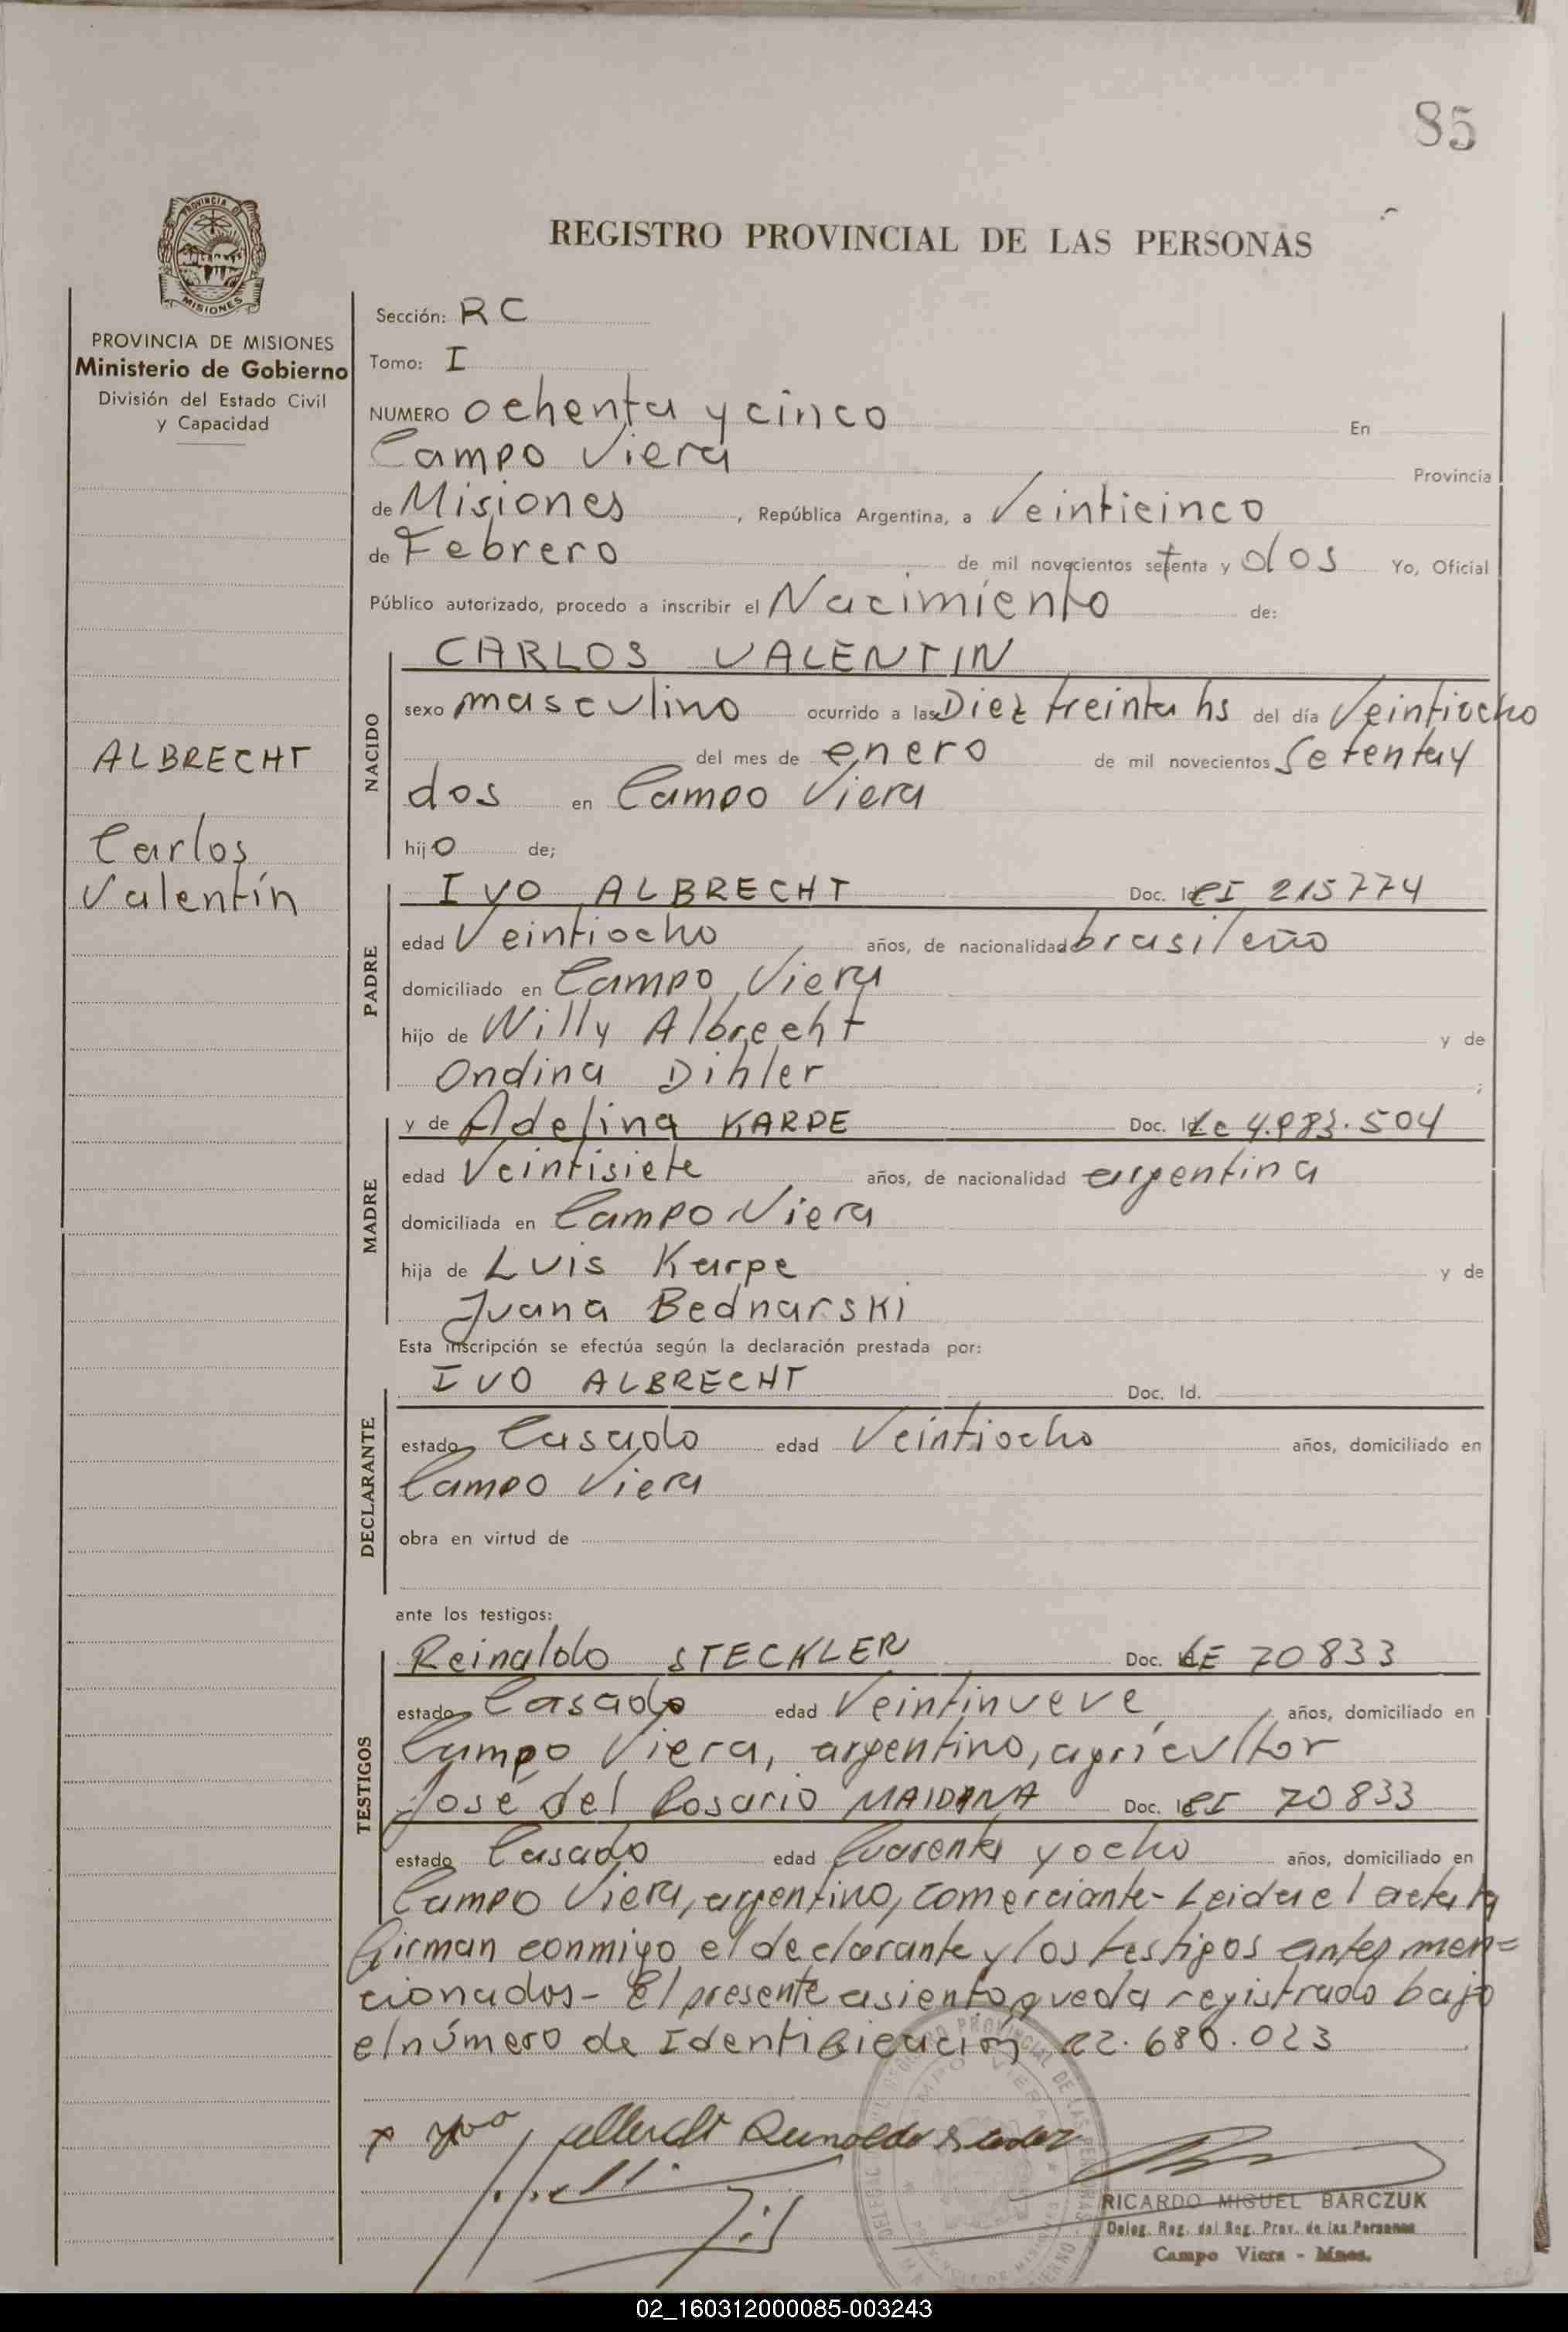 85
PROVINCIA DE
MISIONES
REGISTRO PROVINCIAL DE LAS PERSONAS
PROVINCIA DE MISIONES
Ministerio de Gobierno
División del Estado Civil
y Capacidad
ALBRECHT
Carlos
Valentín
Sección: RC
Tomo: I
NUMERO ochenta y cinco En
Campo Viera Provincia
de Misiones, República Argentina, a Veinticinco
de Febrero de mil novecientos setenta y dos Yo, Oficial
Público autorizado, procedo a inscribir el Nacimiento de:
NACIDO
CARLOS VALENTIN
sexo masculino ocurrido a las Diez treinta hs del día Veintiocho
del mes de enero de mil novecientos Setenta y
dos en Campo Viera
hijo de;
PADRE
IVO ALBRECHT Doc. Id CI 215774
edad Veintiocho años, de nacionalidad brasileño
domiciliado en Campo Viera
hijo de Willy Albrecht y de
Ondina Dihler ;
MADRE
y de Adelina KARPE Doc. Id Lc 4.983.504
edad Veintisiete años, de nacionalidad argentina
domiciliada en Campo Viera
hija de Luis Karpe y de
Juana Bednarski
Esta inscripción se efectúa según la declaración prestada por:
DECLARANTE
IVO ALBRECHT Doc. Id.
estado Casado edad Veintiocho años, domiciliado en
Campo Viera
obra en virtud de
ante los testigos:
TESTIGOS
Reinaldo STECKLER Doc. LE 70833
estado Casado edad Veintinueve, años, domiciliado en
Campo Viera, argentino, agricultor
José del Rosario MAIDANA Doc. Id CI 70833
estado Casado edad Cuarenta y ocho años, domiciliado en
Campo Viera, argentino, comerciante- Leida el acta la
firman conmigo el declarante y los testigos antes men=
cionados- El presente asiento queda registrado bajo
el número de Identificación 22.680.023
x Ivo Albrecht Reinaldo
REGISTRO PROVINCIAL DE LAS PERSONAS
CAMPO VIERA
RICARDO MIGUEL BARCZUK
Deleg. Reg. del Reg. Prov. de las Personas
Campo Viera - Mnes.
02_160312000085-003243